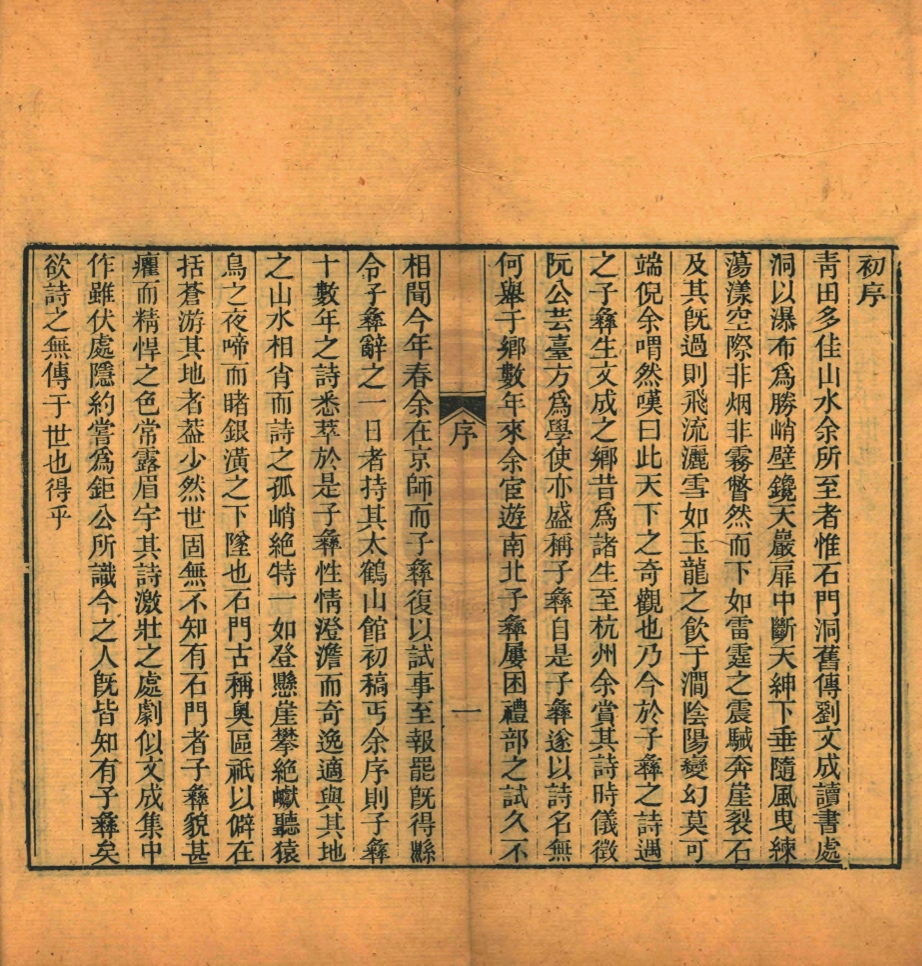 初序
青田多佳山水余所至者惟石門洞舊傳劉文成讀書處
洞以瀑布爲勝峭壁鑱天巖扉中斷天紳下垂隨風曳練
蕩漾空際非烟非霧瞥然而下如雷霆之震駴奔崖裂石
及其旣過則飛流灑雪如玉龍之飲于澗陰陽變幻莫可
端倪余喟然嘆曰此天下之奇觀也乃今於子彝之詩遇
之子彝生文成之鄉昔爲諸生至杭州余賞其詩時儀徵
阮公芸臺方爲學使亦盛稱子彝自是子彝遂以詩名無
何舉于鄉數年來余宦遊南北子彝屢困禮部之試久不
序
一
相聞今年春余在京師而子彝復以試事至報罷旣得縣
令子彝辭之一日者持其太鶴山館初稿丐余序則子彝
十數年之詩悉萃於是子彝性情澄澹而奇逸適與其地
之山水相肖而詩之孤峭絕特一如登懸崖攀絕巘聽猿
鳥之夜啼而睹銀潢之下墜也石門古稱奧區祇以僻在
括蒼游其地者葢少然世固無不知有石門者子彝貌甚
癯而精悍之色常露眉宇其詩激壯之處劇似文成集中
作雖伏處隱約嘗爲鉅公所識今之人旣皆知有子彝矣
欲詩之無傳于世也得乎